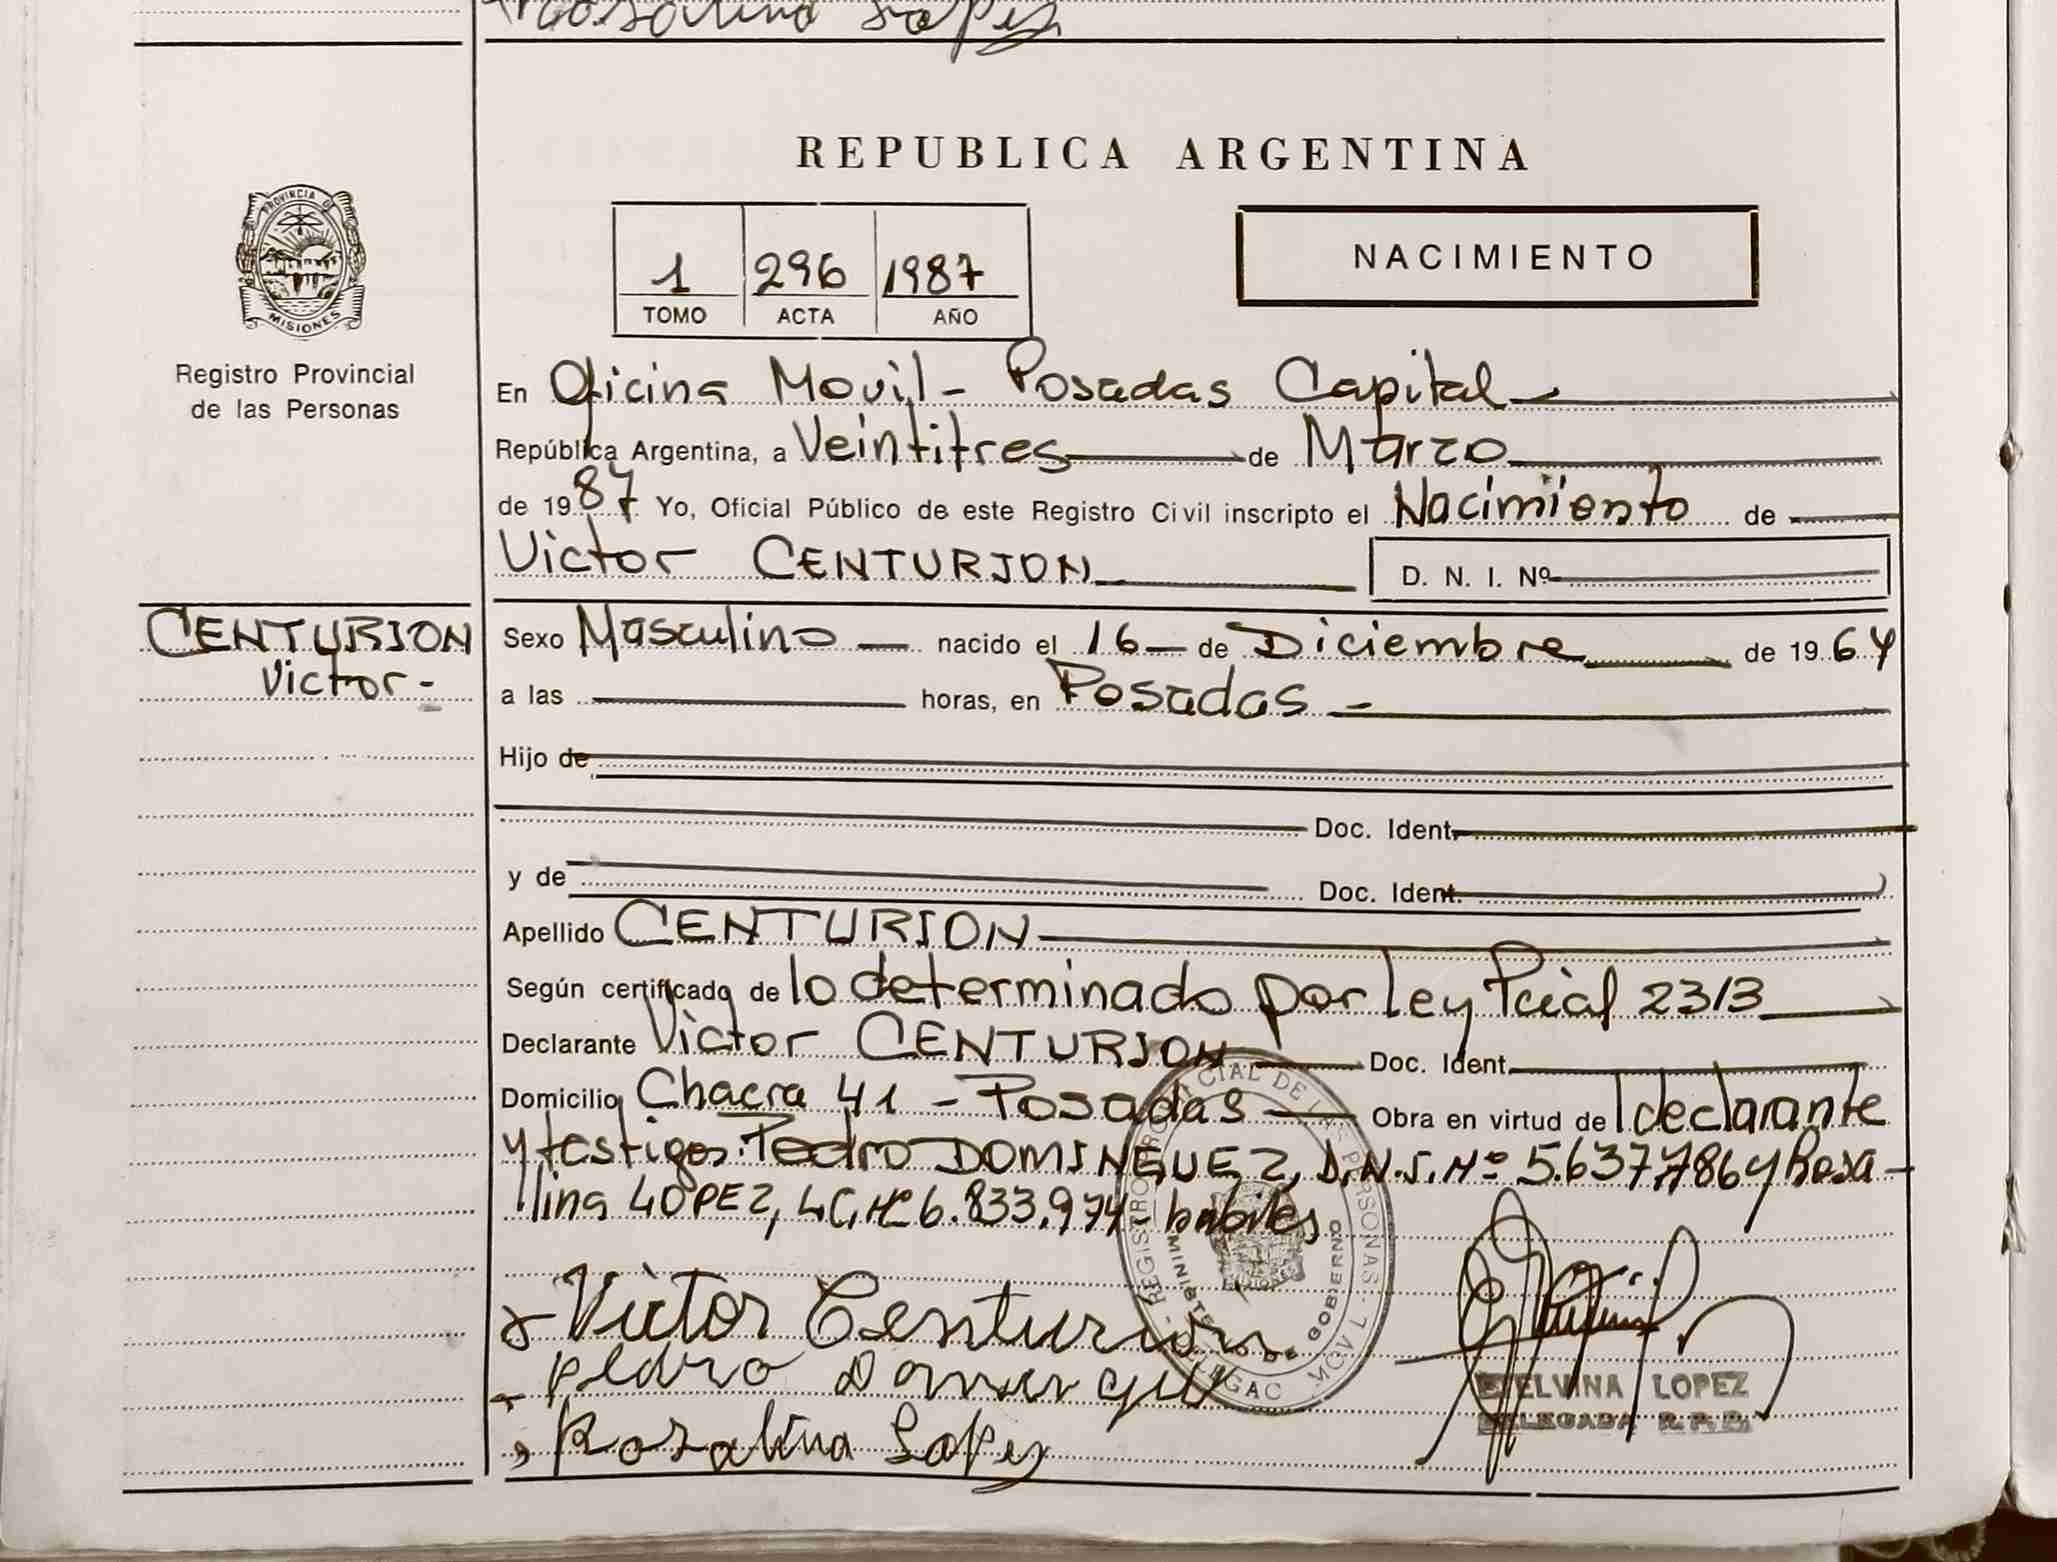 Rosalina Lopez
REPUBLICA ARGENTINA
PROVINCIA DE
MISIONES
Registro Provincial
de las Personas
1 296 1987
TOMO ACTA AÑO
NACIMIENTO
En Oficina Movil - Posadas Capital
República Argentina, a Veintitres de Marzo
de 1987 Yo, Oficial Público de este Registro Civil inscripto el Nacimiento de
Victor CENTURION D. N. I. Nº
CENTURION
Victor -
Sexo Masculino nacido el 16 de Diciembre de 1964
a las horas, en Posadas -
Hijo de
Doc. Ident.
y de Doc. Ident.
Apellido CENTURION
Según certificado de lo determinado por Ley Pcial 2313
Declarante Victor CENTURION Doc. Ident.
Domicilio Chacra 41 - Posadas Obra en virtud de l declarante
y testigos: Pedro DOMINGUEZ, D.N.I. Nº 5.637.786 y Rosa-
lina LOPEZ, L.C. Nº 6.833.974 - habiles
Victor Centurion
Pedro Domingue
Rosalina Lopez
MINISTERIO DE GOBIERNO
ELVINA LOPEZ
DELEGADA R.P.P.